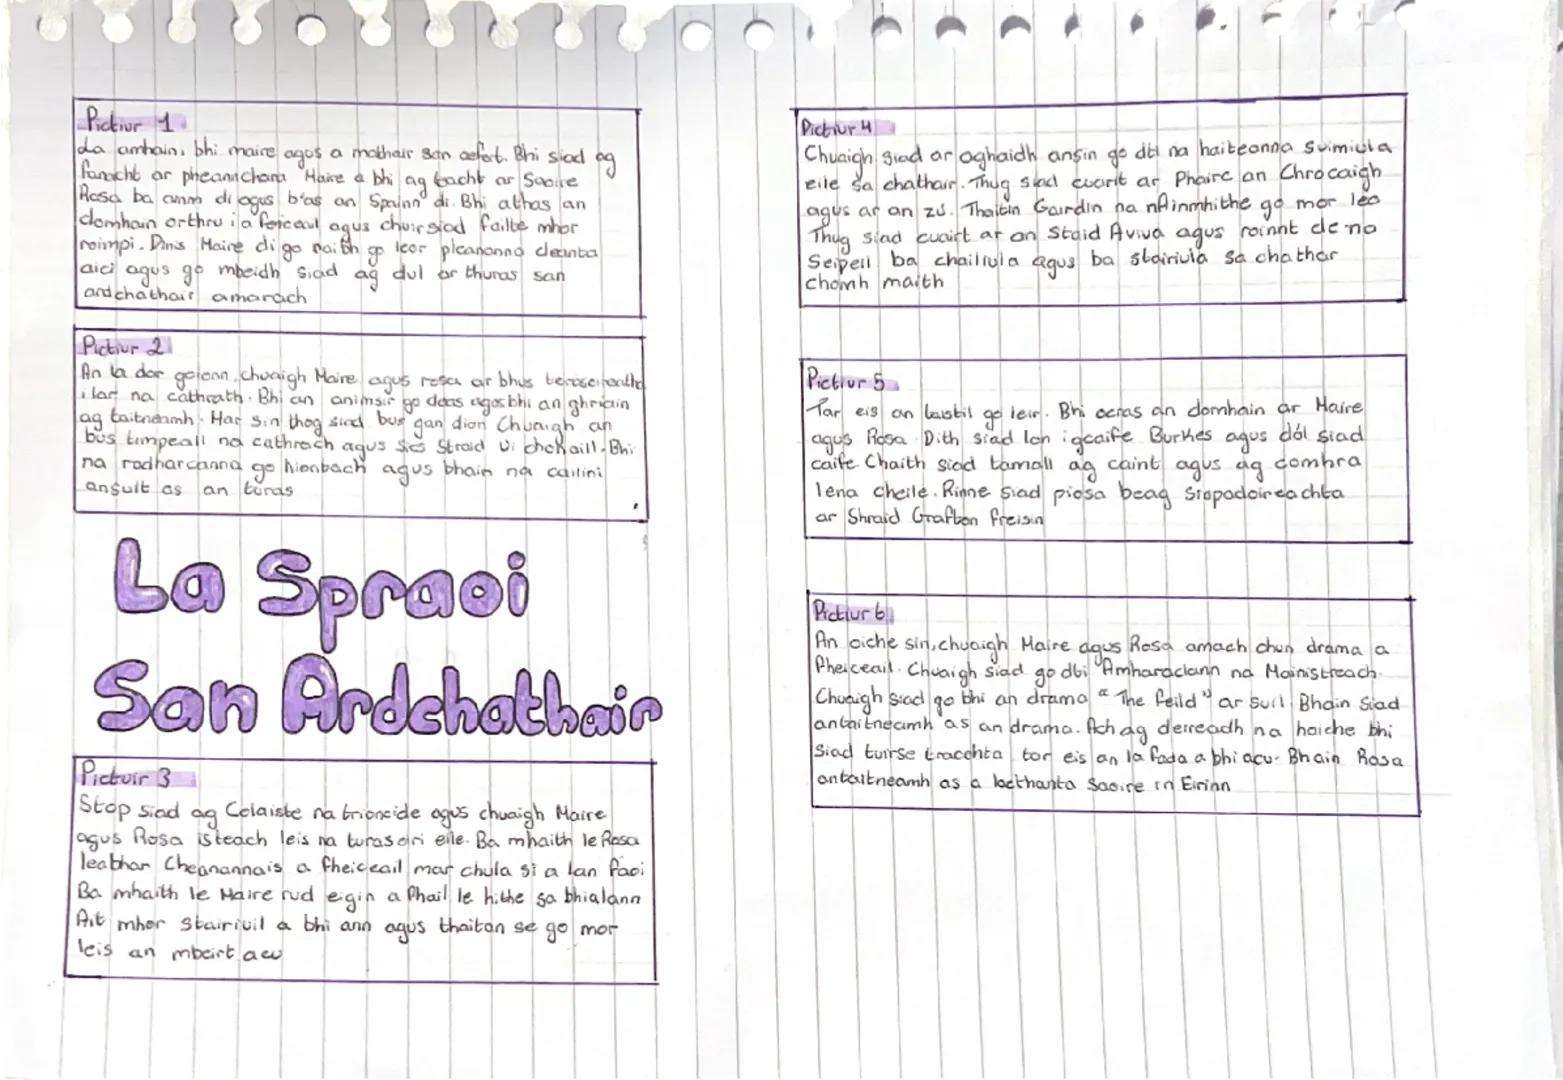 Pictiur 1
La amhain, bhi maire agus a mathair san aefort. Bhi siad ag
fanacht ar pheannchara Maire a bhi ag tacht ar Saoire
Rosa ba anm di agus b'as an Spainn di. Bhi athas an
domhain orthru i a feiceaul agus chuir siad failte mhor
roimpi. Dinis Maire di go raibh go leor pleananna deanta
aici agus go mbeidh siad ag dul ar thuras san
ardchathair amarach
Pictiur 2
An la dar goionn, chuaigh Maire agus rosa ar bhus
i lar na cathrath. Bhi an animsir go deas agus bhi an ghriain
ag taitneamh. Mar sin thog siad bus gan dion Chuaigh an
bus timpeall na cathrach agus sios Straid Ui choKaill. Bhi
na radharcanna go hionbach agus bhain na cailini
ansult as an turas
La Spraoi
San Ardchathair
Pictuir 3
Stop siad ag Colaiste na trionoide agus chuaigh Maire
agus Rosa isteach leis na turasoiri eile. Ba mhaith le Rosa
leabhar Cheanannais a fheiceail mar chula si a lan faoi
Ba mhaith le Maire rud eigin a fhail le hithe sa bhialann
Ait mhor Stairiuil a bhi ann agus thaitan se go mor
leis an mbeirt acu
Pictiur 4
Chuaigh siad ar aghaidh ansin go dti na haiteanna Suimiula
eile sa chathair. Thug siad cuairt ar Phairc an Chrocaigh
agus ar an zu. Thaitin Gairdin na nAinmhithe go mor leo
Thug siad cuairt ar an Staid Aviva agus roinnt de na
Seipeil ba chailiula agus ba stairiula sa chathar
chomh maith
Pictiur 5
Tar eis an taistil go leir. Bhi ocras an domhain ar Maire
agus Rosa. Dith siad lon i gcaife Burkes agus dól siad
caife. Chaith siad tamall ag caint agus ag comhra
lena cheile. Rinne siad piosa beag siopadoireachta
ar Shraid Grafton freisin
Pictiur 6
An oiche sin, chuaigh Maire agus Rosa amach chun drama a
fheiceail. Chuaigh siad go dti Amharaclann na Mainistreach.
Chuaigh siad go bhi an drama "The feild" ar suil. Bhain Siad
antaitneamh as an drama. Ach ag deireadh na hoiche bhi
siad tuirse tracehta tar eis an la fada a bhi acu. Bhain Rosa
antaitneamh as a laethanta Saoire in Eirinn